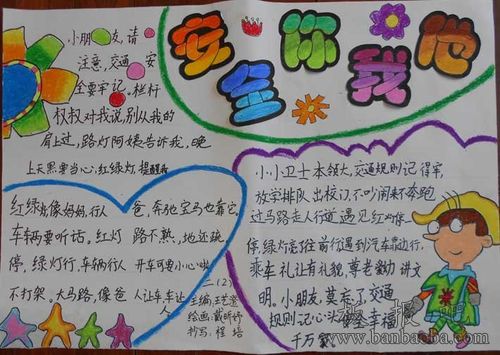 安全你我他
小朋友,请
注意,交通安
全要牢记。栏杆
杈杈对我说,别从我的
肩上过,路灯阿姨告诉我,晚
上天黑要当心,红绿灯,提醒我
红绿灯像妈妈,行人
车辆要听话。红灯
停,绿灯行,车辆行人
不打架。大马路,像爸
爸,奔驰宝马也靠它,
路不熟,地还疏
开车可要小心
人让车,车让
人
二(2)
主编:王艺
绘画:戴昕妤
抄写:程培
小小卫士本领大,交通规则记得牢,
放学排队出校门,不吵闹来不奔跑
过马路走人行道,遇见红灯停
停,绿灯亮往前行遇到汽车靠边行,
乘车礼让有礼貌,尊老爱幼讲文
明。小朋友莫忘了交通
规则记心头
幸福
千万家
www.banbaoba.com